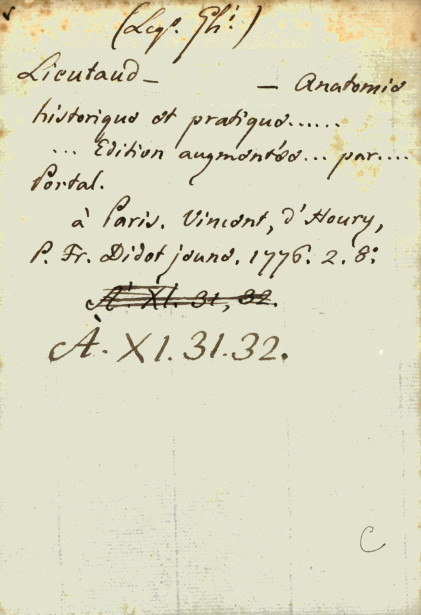 (Leg. Ghi)
Lieutaud — — Anatomie
historique et pratique......
... Edition augmentée... par....
Portal.
à Paris. Vincent, d'Houry,
P. Fr. Didot jeune. 1776. 2. 8:
A. XI. 31, 32.
A. XI. 31. 32.
C